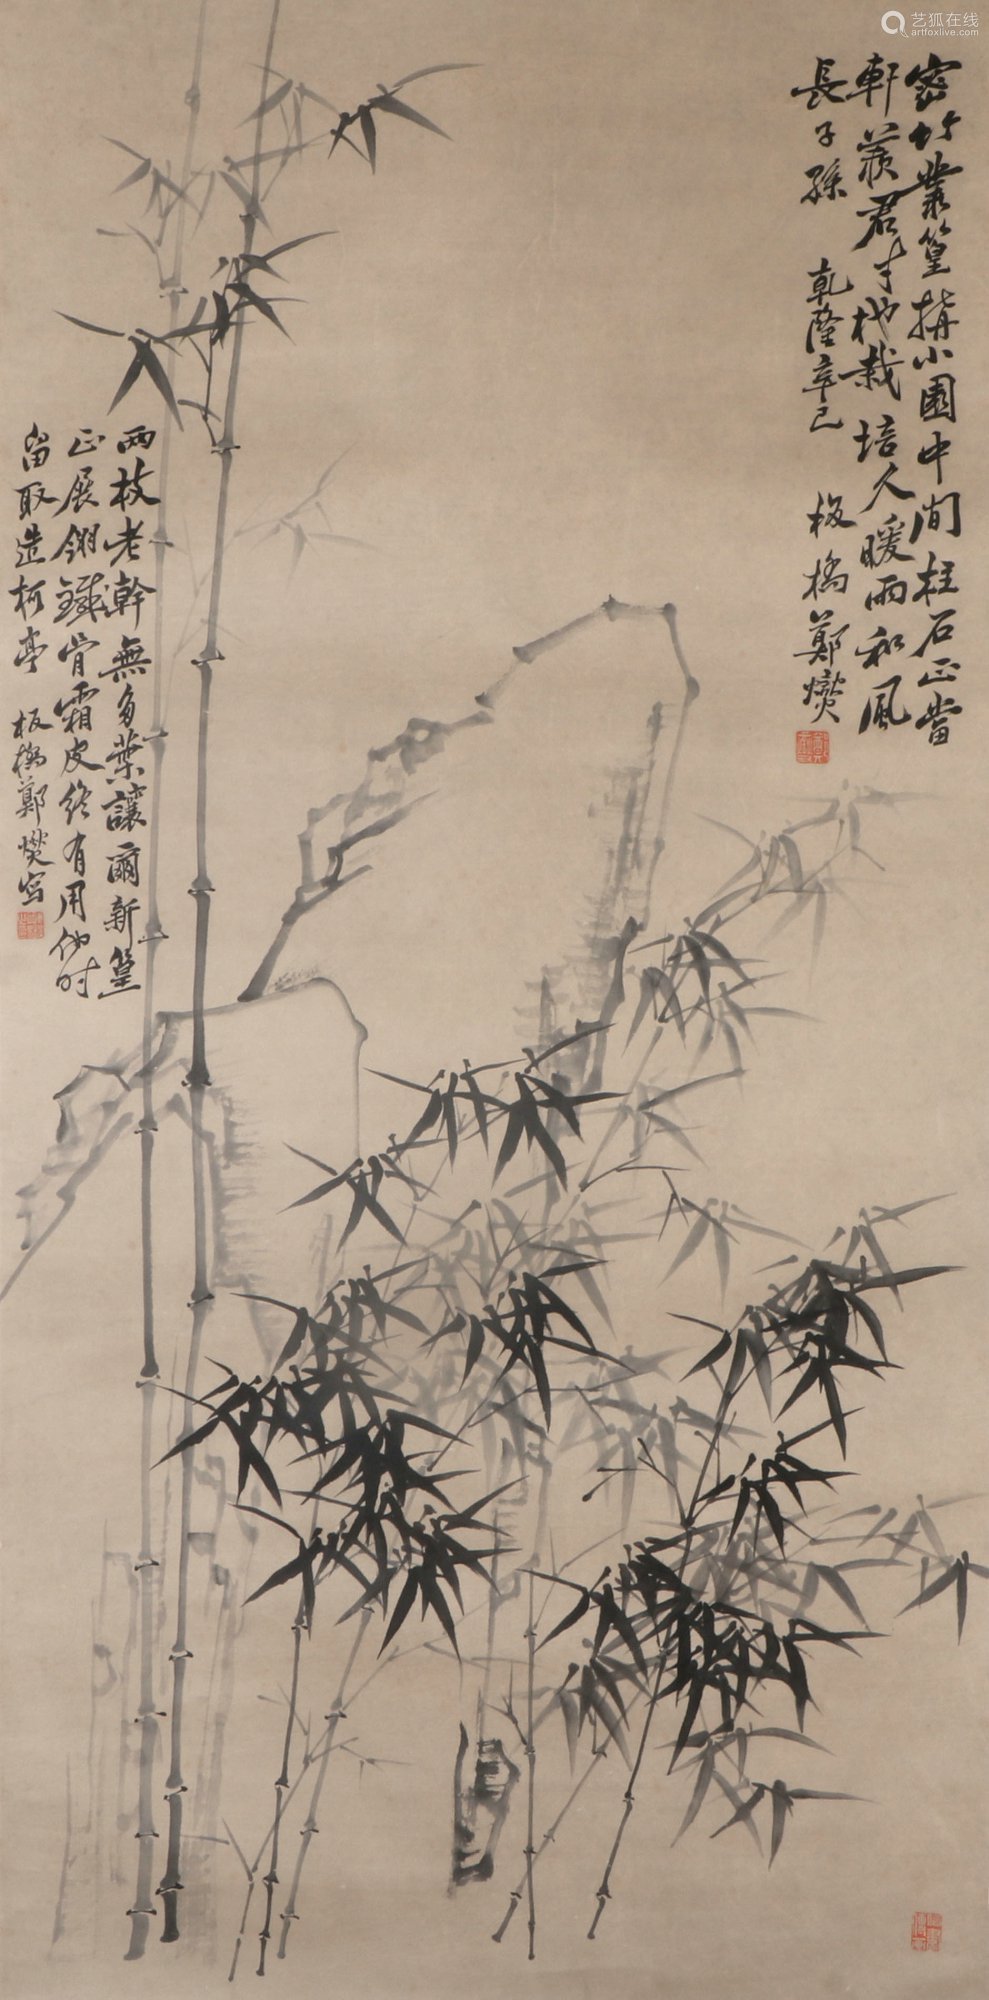 密竹叢篁搆小園中間柱石正當
軒羨君才地栽培久暖雨和風
長子孫 乾隆辛巳 板橋鄭燮
兩枝老幹無多葉讓爾新篁
正展翎鐵骨霜皮終有用他时
留取造柯亭 板橋鄭燮写
艺狐在线
artfoxlive.com